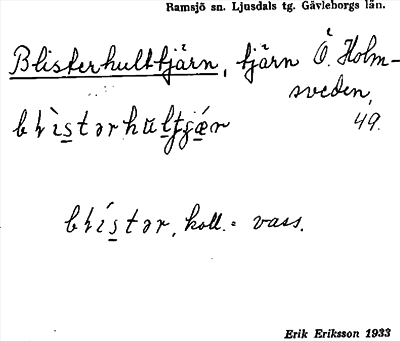 Ramsjö sn. Ljusdals tg. Gävleborgs län.
Blisterhulttjärn, tjärn Ö. Holm-
sveden,
49.
blìstərhultjǽr
blístər, koll. = vass.
Erik Eriksson 1933